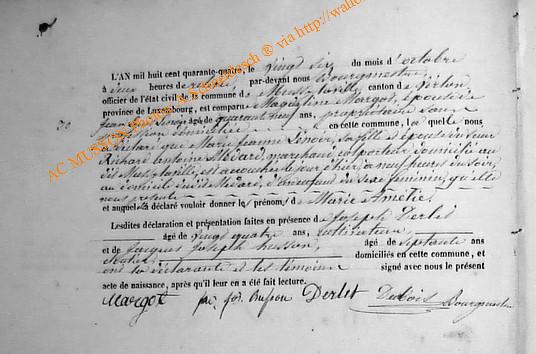 L'AN mil huit cent quarante-quatre, le vingt six du mois d'octobre
à heures de relevée, par-devant nous Bourgmestre
officier de l'état civil de la commune de Mussy-la-ville canton de Virton,
province de Luxembourg, est comparue Margot, épouse de
âgé de quarante neuf ans, propriétaire, sans
profession domiciliée en cette commune, laquelle nous
a déclaré que Marie Jeanne Sinoir, sa fille et épouse du Sieur
Richard Antoine Médard, marchand colporteur, domicilié au
dit Mussy-la-ville, est accouchée le jour d'hier, à neuf heures du soir,
au domicile dudit Médard, d'un enfant du sexe féminin, qu'elle
nous présente
et auquel a déclaré vouloir donner les prénoms, de Marie Amélie.
Lesdites déclaration et présentation faites en présence de Joseph Derlet
âgé de vingt quatre ans, cultivateur,
et de Jacques Joseph husson, âgé de septante ans
domiciliés en cette commune, et
ont la déclarante et les témoins signé avec nous le présent
acte de naissance, après qu'il leur en a été fait lecture.
Margot husson Derlet Dubois Bourgmestre
AC MUSSON Photos A. Schneidesch ® via http://wallo